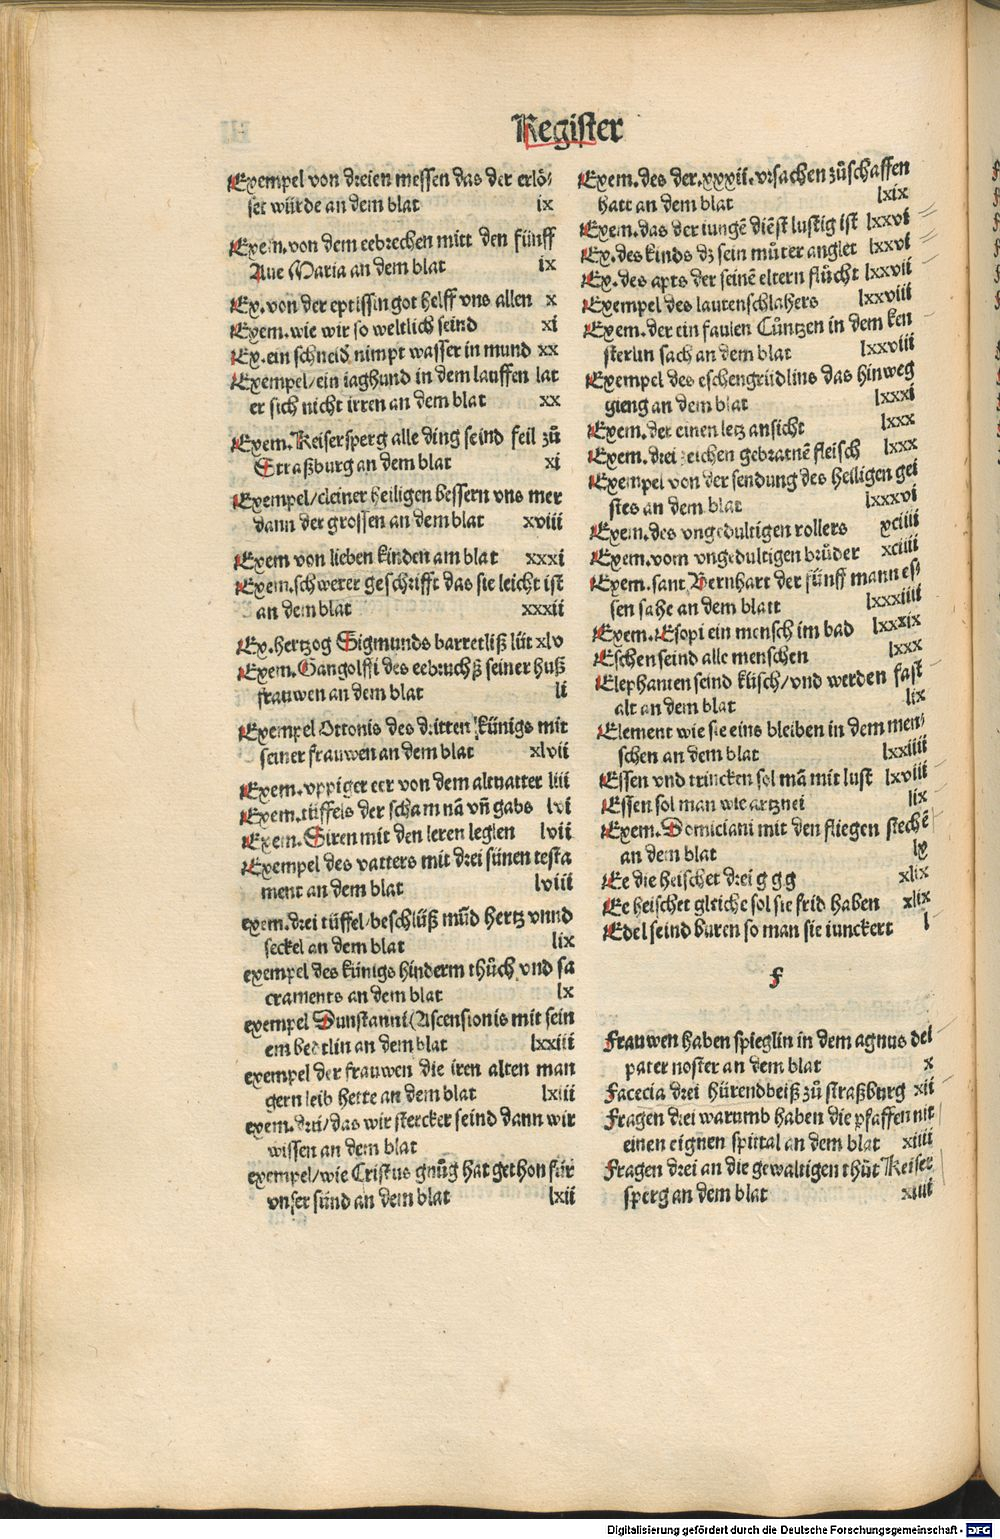 Register
Exempel von dreien messen das der erlö⸗
set würde an dem blat ix
Exem. von dem eebrechen mitt den fünff
Aue Maria an dem blat ix
Ex. von der eptissin got helff vns allen x
Exem. wie wir so weltlich seind xi
Ex. ein schneid nimpt wasser in mund xx
Exempel/ein iaghund in dem lauffen lat
er sich nicht irren an dem blat xx
Exem. Keisersperg alle ding seind feil zů
Straßburg an dem blat xi
Exempel/cleiner heiligen bessern vns mer
dann der grossen an dem blat xviii
Exem von lieben kinden am blat xxxi
Exem. schwerer geschrifft das sie leicht ist
an dem blat xxxii
Ex. hertzog Sigmunds barretliß lüt xlv
Exem. Gangolffi des eebruchß seiner huß
frauwen an dem blat li
Exempel Ottonis des dritten künigs mit
seiner frauwen an dem blat xlvii
Exem. vppiger eer von dem altuatter liii
Exem. tüffels der scham nā vñ gabs lvi
Exem. Siren mit den leren leglen lvii
Exempel des vatters mit drei sünen testa
ment an dem blat lviii
exem. drei tüffel/beschlüß mūd hertz vnnd
seckel an dem blat lix
exempel des künigs hinderm thůch vnd sa
craments an dem blat lx
exempel Dunstanni (Ascensionis mit sein
em bedtlin an dem blat lxxiii
exempel der frauwen die iren alten man
gern leib hette an dem blat lxiii
exem. drü/das wir stercker seind dann wir
wissen an dem blat
exempel/wie Cristus gnůg hat gethon für
vnser sünd an dem blat lxii
Exem. des der .xxxii. vrsachen zůschaffen
hatt an dem blat lxix
Exem. das der iungē diēst lustig ist lxxvi
Ex. des kinds dz sein můter anglet lxxvi
Ex. des apts der seinē eltern flůcht lxxvii
Exempel des lautenschlahers lxxviii
Exem. der ein faulen Cůntzen in dem ken
sterlin sach an dem blat lxxviii
Exempel des eschengrüdlins das hinweg
gieng an dem blat lxxxi
Exem. der einen letz ansicht lxxx
Exem. drei zeichen gebratnē fleisch lxxx
Exempel von der sendung des heiligen gei
stes an dem blat lxxxvi
Exem. des vngedultigen rollers xciiii
Exem. vom vngedultigen brůder xciiii
Exem. sant Bernhart der fünff mann es⸗
sen sahe an dem blatt lxxxiiii
Exem. Esopi ein mensch im bad lxxxix
Eschen seind alle menschen lxxx
Elephanten seind klisch/vnd werden fast
alt an dem blat lix
Element wie sie eins bleiben in dem men⸗
schen an dem blat lxxiiii
Essen vnd trincken sol mā mit lust lxviii
Essen sol man wie artznei lix
Exem. Domiciani mit den fliegen stechē
an dem blat lx
Ee die heischet drei g g g xlix
Ee heischet gleiche sol sie frid haben xlix
Edel seind buren so man sie iunckert l
F
Frauwen haben spieglin in dem agnus dei
pater noster an dem blat x
Facecia drei hürendbeiß zů straßburg xii
Fragen drei warumb haben die pfaffen nit
einen eignen spittal an dem blat xiiii
Fragen drei an die gewaltigen thůt Keiser
sperg an dem blat xiiii
Digitalisierung gefördert durch die Deutsche Forschungsgemeinschaft - DFG